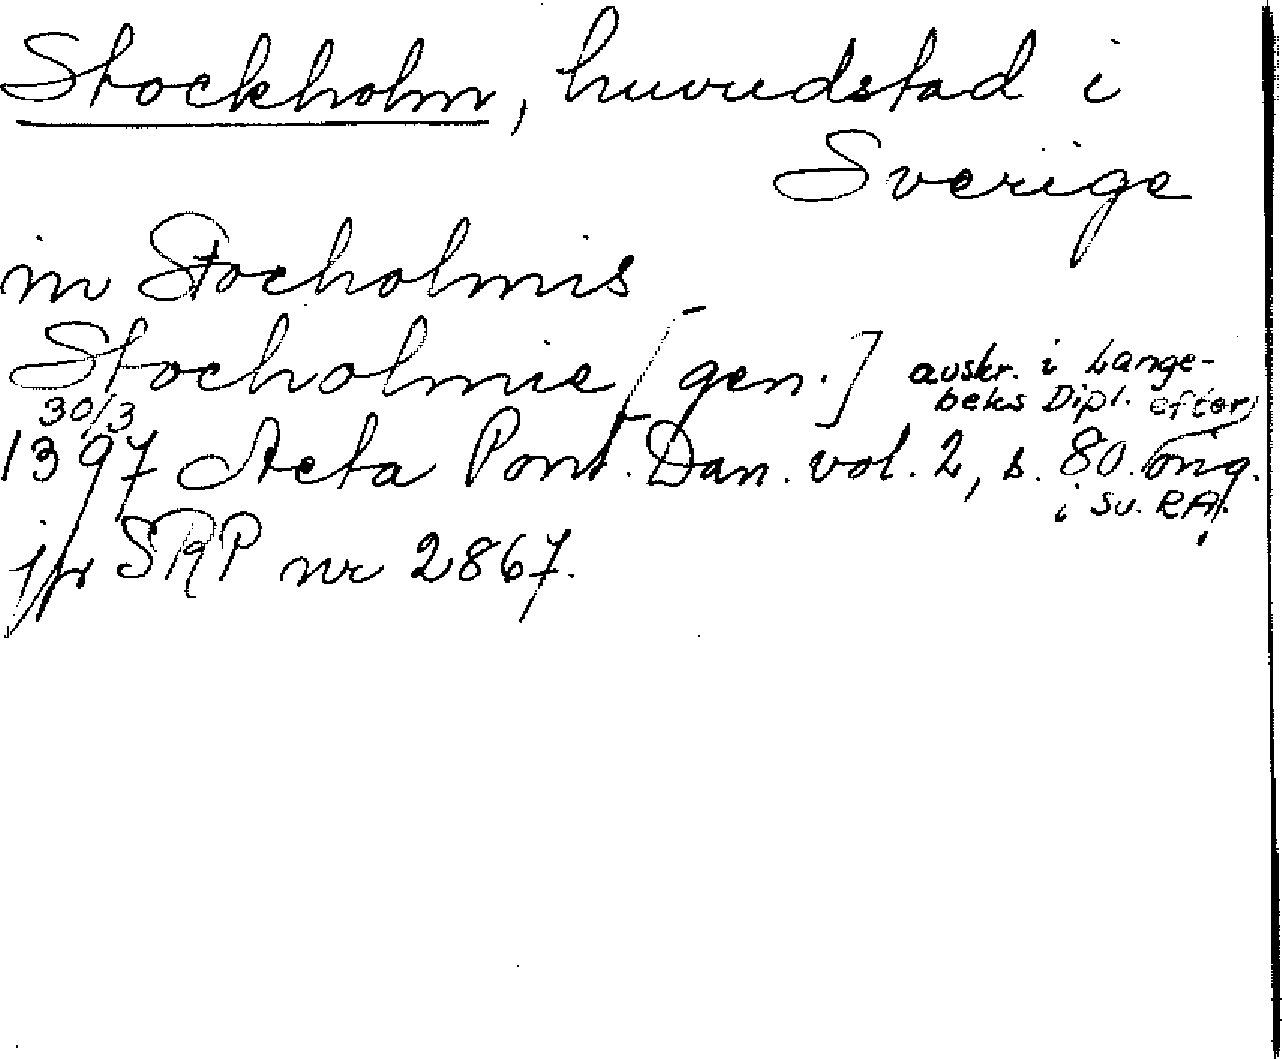 Stockholm, huvudstad i
Sverige
in Stocholmis
Stocholmie [gen.] avskr. i Lange-
beks Dipl. efter
30/3
1397 Acta Pont. Dan. vol. 2, s. 80. orig.
i Sv. RA.
jfr SRP nr 2867.